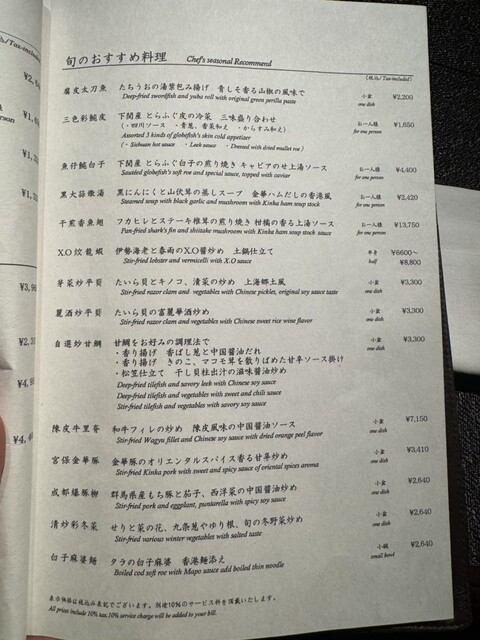 込/Tax-included)
旬のおすすめ料理 Chef's seasonal Recommend
(税込/Tax-included)
腐皮太刀魚 たちうおの湯葉包み揚げ 青しそ香る山椒の風味で 小盆 ¥2,200
Deep-fried swordfish and yuba roll with original green perilla paste one dish
三色彩鮠皮 下関産とらふぐ皮の冷菜 三味盛り合わせ お一人様 ¥1,650
(・四川ソース ・青葱、香菜和え ・からすみ和え) for one person
Assorted 3 kinds of globefish's skin cold appetizer
(・Sichuan hot sauce ・Leek sauce ・Dressed with dried mullet roe)
魚仔鮠白子 下関産とらふぐ白子の煎り焼き キャビアのせ上湯ソース お一人様 ¥4,400
Sautéed globefish's soft roe and special sauce, topped with caviar for one person
黒大蒜燉湯 黒にんにくと山伏茸の蒸しスープ 金華ハムだしの香港風 お一人様 ¥2,420
Steamed soup with black garlic and mushroom with Kinka ham soup stock for one person
干煎香魚翅 フカヒレとステーキ椎茸の煎り焼き 柑橘の香る上湯ソース お一人様 ¥13,750
Pan-fried shark's fin and shiitake mushroom with Kinka ham soup stock sauce for one person
X.O炆龍蝦 伊勢海老と春雨のX.O醤炒め 土鍋仕立て 半身 ¥6600~
Stir-fried lobster and vermicelli with X.O sauce half ¥8,800
芽菜炒平貝 たいら貝とキノコ、漬菜の炒め 上海郷土風 小盆 ¥3,300
Stir-fried razor clam and vegetables with Chinese pickles, original soy sauce taste one dish
麗酒炒平貝 たいら貝の富麗華酒炒め 小盆 ¥3,300
Stir-fried razor clam and vegetables with Chinese sweet rice wine flavor one dish
自選炒甘鯛 甘鯛をお好みの調理法で 小盆 ¥3,300
・香り揚げ 香ばし葱と中国醤油だれ one dish
・香り揚げ きのこ、マコモ茸を散りばめた甘辛ソース掛け
・松笠仕立て 干し貝柱出汁の滋味醤油炒め
Deep-fried tilefish and savory leek with Chinese soy sauce
Deep-fried tilefish and vegetables with sweet and chili sauce
Stir-fried tilefish and vegetables with savory soy sauce
陳皮牛里脊 和牛フィレの炒め 陳皮風味の中国醤油ソース 小盆 ¥7,150
Stir-fried Wagyu fillet and Chinese soy sauce with dried orange peel flavor one dish
宮保金華豚 金華豚のオリエンタルスパイス香る甘辛炒め 小盆 ¥3,410
Stir-fried Kinka pork with sweet and spicy sauce of oriental spices aroma one dish
成都爆豚柳 群馬県産もち豚と茄子、西洋菜の中国醤油炒め 小盆 ¥2,640
Stir-fried pork and eggplant, puntarella with spicy soy sauce one dish
清炒彩冬菜 せりと菜の花、九条葱やゆり根、旬の冬野菜炒め 小盆 ¥2,640
Stir-fried various winter vegetables with salted taste one dish
白子麻婆麺 タラの白子麻婆 香港麺添え 小碗 ¥2,640
Boiled cod soft roe with Mapo sauce add boiled thin noodle small bowl
表示価格は税込み表記でございます。別途10%のサービス料を頂戴いたします。
All prices include 10% tax.10% service charge will be added to your bill.